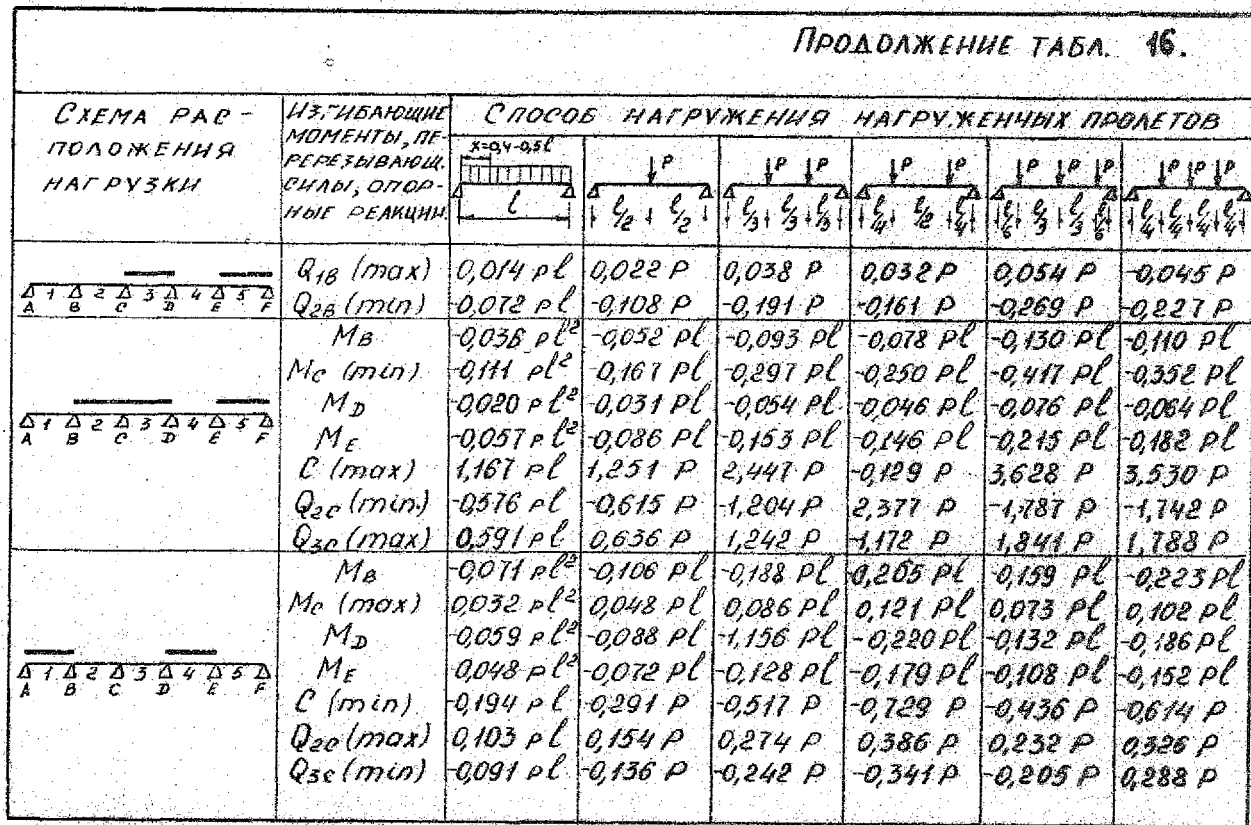 ПРОДОЛЖЕНИЕ ТАБЛ. 16.
СХЕМА РАС-
ПОЛОЖЕНИЯ
НАГРУЗКИ
ИЗГИБАЮЩИЕ
МОМЕНТЫ, ПЕ-
РЕРЕЗЫВАЮЩ.
СИЛЫ, ОПОР-
НЫЕ РЕАКЦИИ.
СПОСОБ НАГРУЖЕНИЯ НАГРУЖЕННЫХ ПРОЛЕТОВ
x=0,4-0,5l P P P P P P P P P P P
l l/2 l/2 l/3 l/3 l/3 l/4 l/2 l/4 l/6 l/3 l/3 l/6 l/4 l/4 l/4 l/4
Q1B (max) 0,014 pl 0,022 P 0,038 P 0,032 P 0,054 P -0,045 P
A 1 B 2 C 3 D 4 E 5 F
Q2B (min) -0,072 pl -0,108 P -0,191 P -0,161 P -0,269 P -0,227 P
MB -0,036 pl² -0,052 Pl -0,093 Pl -0,078 Pl -0,130 Pl -0,110 Pl
MC (min) -0,111 pl² -0,167 Pl -0,297 Pl -0,250 Pl -0,417 Pl -0,352 Pl
MD -0,020 pl² -0,031 Pl -0,054 Pl -0,046 Pl -0,076 Pl -0,064 Pl
A 1 B 2 C 3 D 4 E 5 F
ME -0,057 pl² -0,086 Pl -0,153 Pl -0,146 Pl -0,215 Pl -0,182 Pl
C (max) 1,167 pl 1,251 P 2,447 P -0,129 P 3,628 P 3,530 P
Q2C (min) -0,576 pl -0,615 P -1,204 P 2,377 P -1,787 P -1,742 P
Q3C (max) 0,591 pl 0,636 P 1,242 P -1,172 P 1,841 P 1,788 P
MB -0,071 pl² -0,106 Pl -0,188 Pl -0,265 Pl -0,159 Pl -0,223 Pl
MC (max) 0,032 pl² 0,048 Pl 0,086 Pl 0,121 Pl 0,073 Pl 0,102 Pl
MD -0,059 pl² -0,088 Pl -1,156 Pl -0,220 Pl -0,132 Pl -0,186 Pl
A 1 B 2 C 3 D 4 E 5 F
ME 0,048 pl² -0,072 Pl -0,128 Pl -0,179 Pl -0,108 Pl -0,152 Pl
C (min) -0,194 pl -0,291 P -0,517 P -0,729 P -0,436 P -0,614 P
Q2C (max) 0,103 pl 0,154 P 0,274 P 0,386 P 0,232 P 0,326 P
Q3C (min) -0,091 pl -0,136 P -0,242 P -0,341 P -0,205 P 0,288 P